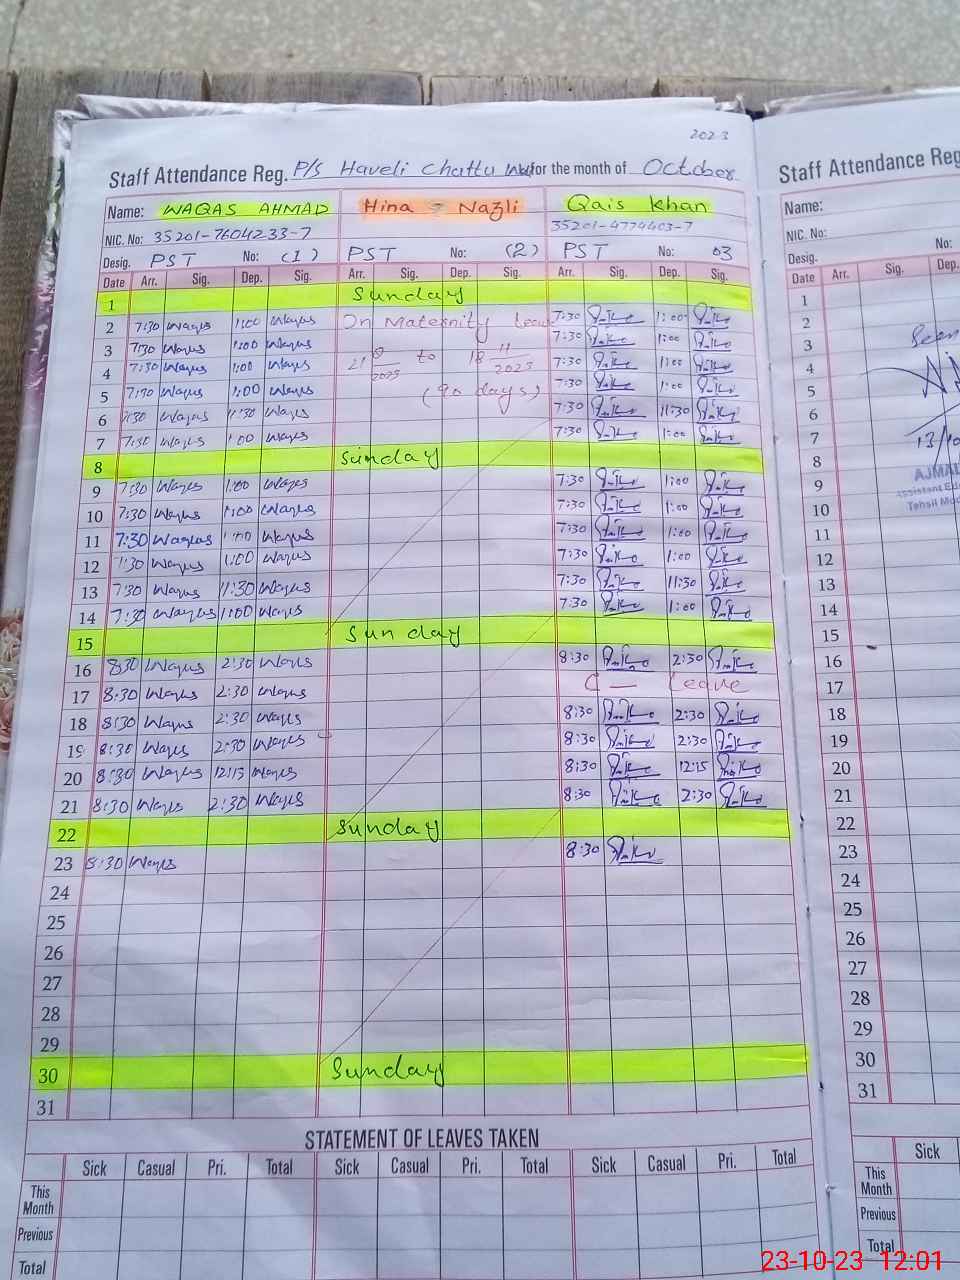 2023
Staff Attendance Reg. P/S Haveli Chattu for the month of October
Name: WAQAS AHMAD Hina Nazli Qais Khan
NIC. No: 35201-7604233-7 35201-4774403-7
Desig. PST No: (1) PST No: (2) PST No: 03
Date Arr. Sig. Dep. Sig. Arr. Sig. Dep. Sig. Arr. Sig. Dep. Sig.
1 Sunday
2 7:30 Waqas 1:00 Waqas On Maternity Leave 7:30 1:00
3 7:30 Waqas 1:00 Waqas 7:30 1:00
4 7:30 Waqas 1:00 Waqas 21 to 18 11 2025 7:30 1:00
5 7:30 Waqas 1:00 Waqas (90 days) 7:30 1:00
6 7:30 Waqas 11:30 Waqas 7:30 11:30
7 7:30 Waqas 1:00 Waqas 7:30 1:00
8 Sunday
9 7:30 Waqas 1:00 Waqas 7:30 1:00
10 7:30 Waqas 1:00 Waqas 7:30 1:00
11 7:30 Waqas 1:00 Waqas 7:30 1:00
12 7:30 Waqas 1:00 Waqas 7:30 1:00
13 7:30 Waqas 11:30 Waqas 7:30 11:30
14 7:30 Waqas 1:00 Waqas 7:30 1:00
15 Sunday
16 8:30 Waqas 2:30 Waqas 8:30 2:30
17 8:30 Waqas 2:30 Waqas C - Leave
18 8:30 Waqas 2:30 Waqas 8:30 2:30
19 8:30 Waqas 2:30 Waqas 8:30 2:30
20 8:30 Waqas 12:15 Waqas 8:30 12:15
21 8:30 Waqas 2:30 Waqas 8:30 2:30
22 Sunday
23 8:30 Waqas 8:30
24
25
26
27
28
29
30 Sunday
31
STATEMENT OF LEAVES TAKEN
Sick Casual Pri. Total Sick Casual Pri. Total Sick Casual Pri. Total
This Month
Previous
Total
Staff Attendance Reg
Name:
NIC. No:
Desig. No:
Date Arr. Sig. Dep.
1
2
3 Seen
4
5
6
7 13/10
8
9 AJMAL
10 Assistant Edu
Tehsil Mod
11
12
13
14
15
16
17
18
19
20
21
22
23
24
25
26
27
28
29
30
31
Sick
This Month
Previous
Total
23-10-23 12:01